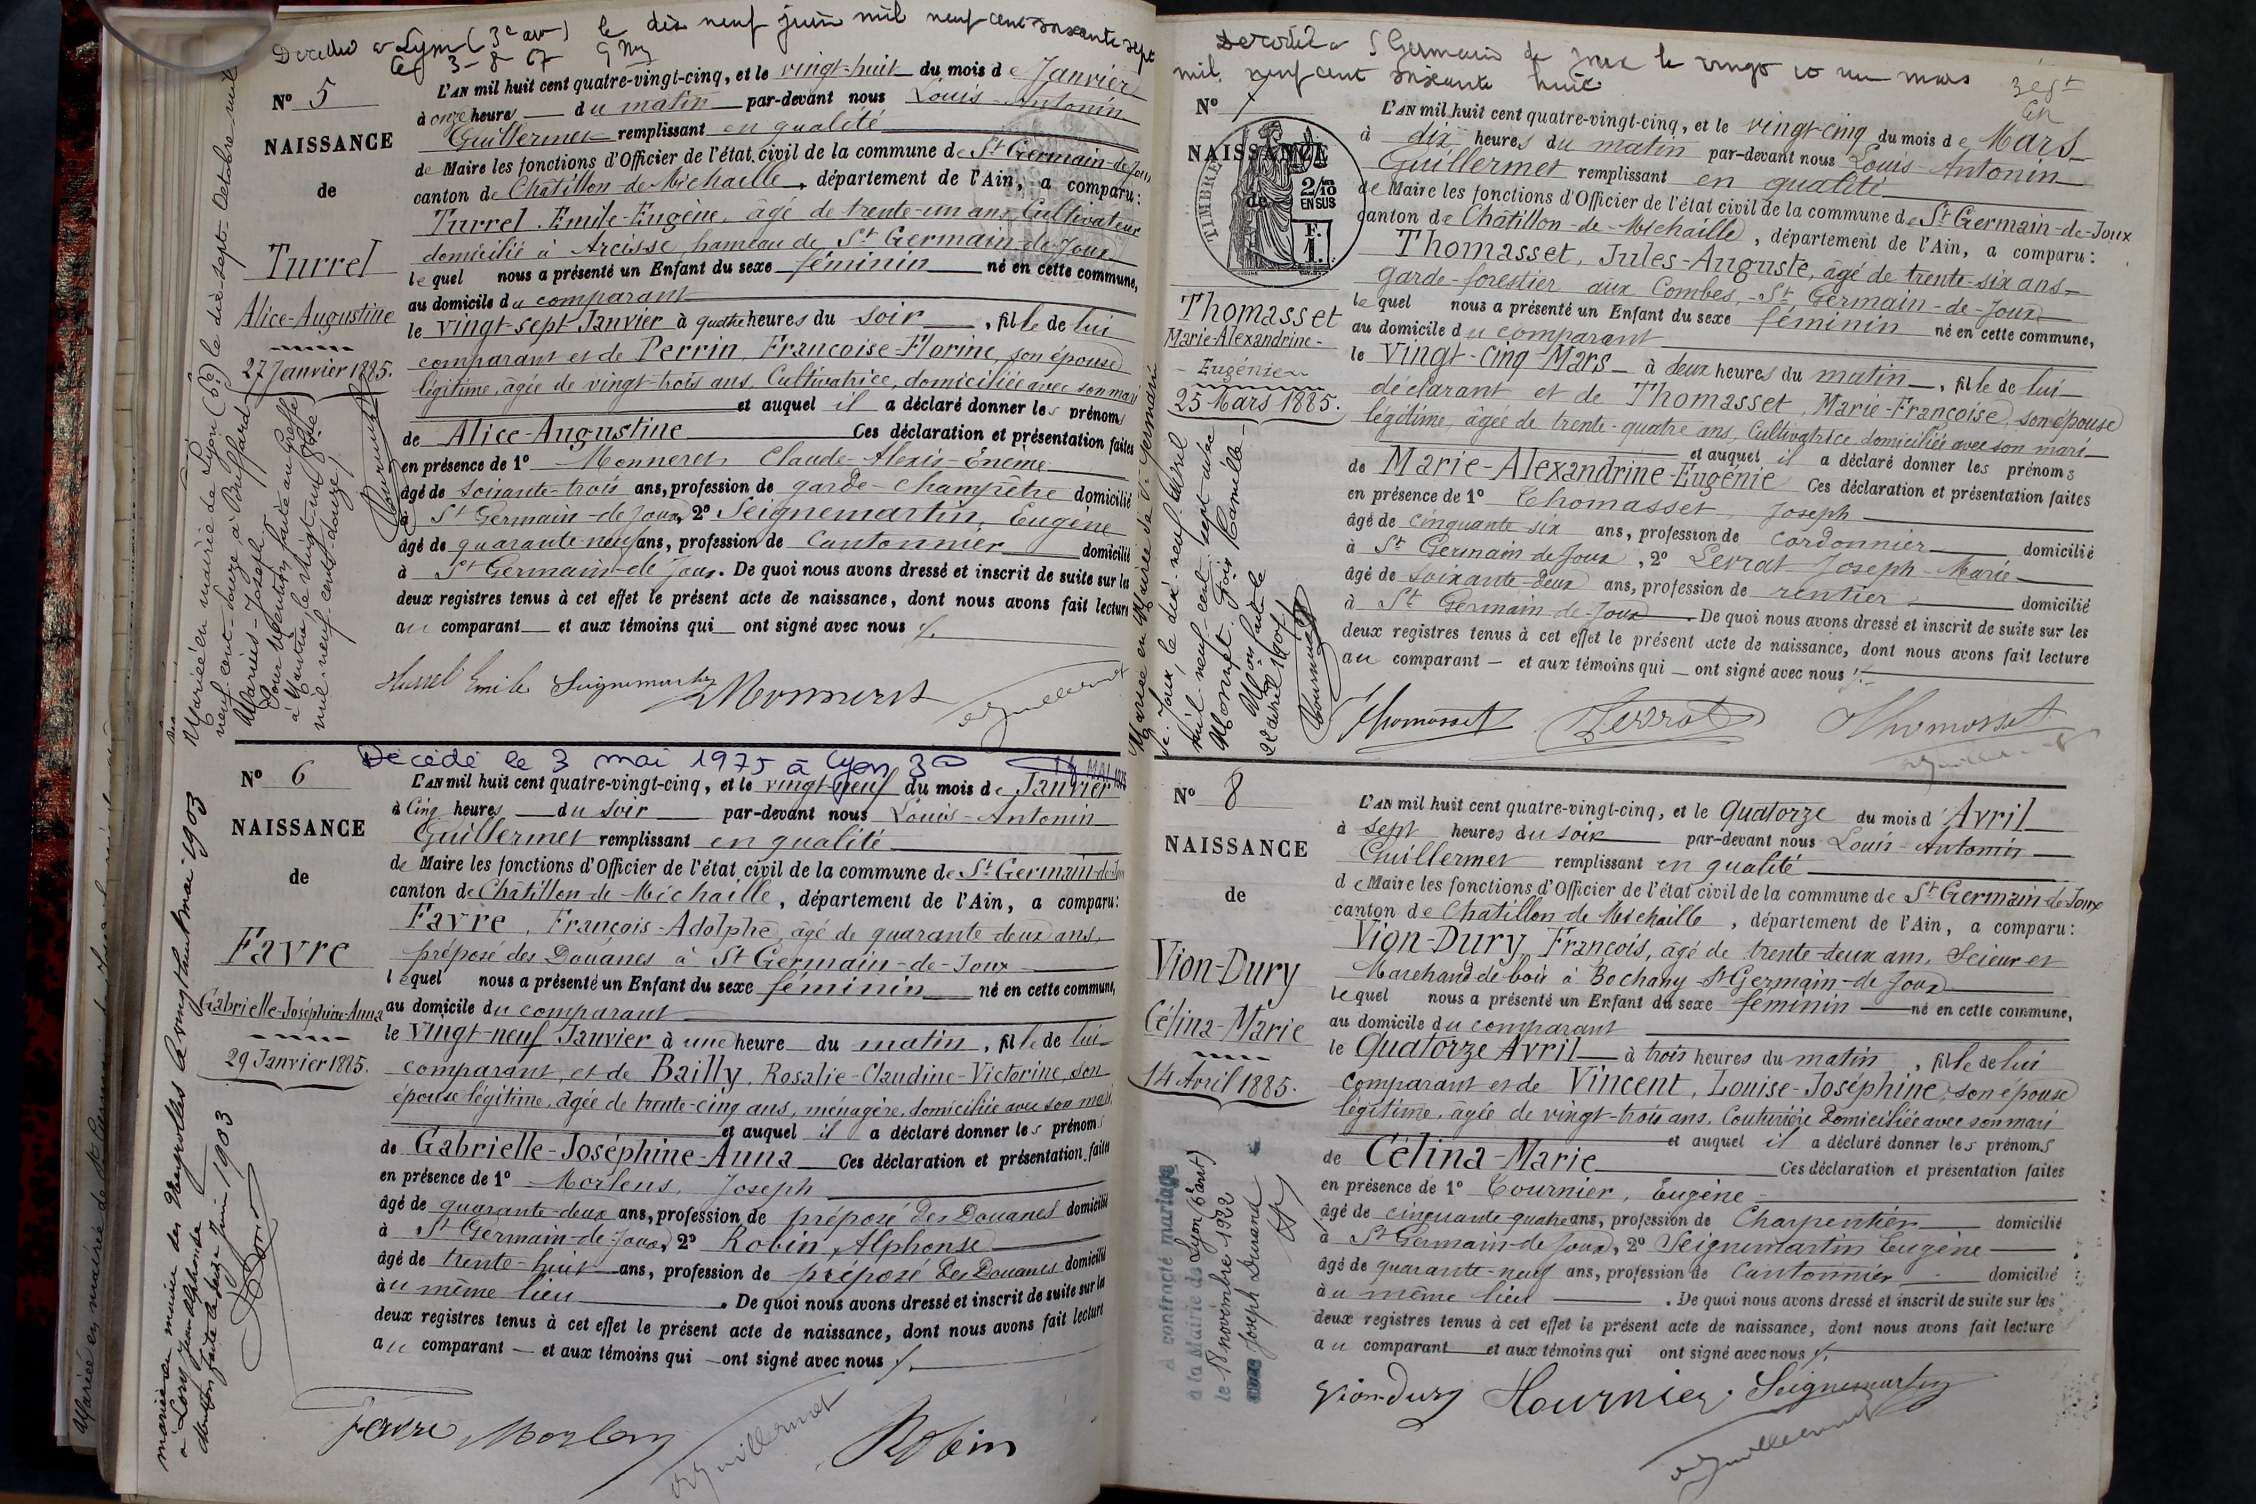 Décédée à Lyon (3e arr) le dix neuf juin mil neuf cent soixante sept
le 3-8-67
N° 5
NAISSANCE
de
Turrel
Alice-Augustine
27 Janvier 1885.
Mariée en mairie de Lyon (6e) le dix-sept Octobre mil
neuf cent douze à Buffard
Marius-Joseph
Pour mention faite au Greffe
à Nantua le vingt un 8bre
mil neuf cent douze
L'AN mil huit cent quatre-vingt-cinq, et le vingt-huit du mois de Janvier
à onze heures du matin par-devant nous Louis-Antonin
Guillermet remplissant en qualité
de Maire les fonctions d'Officier de l'état civil de la commune de St Germain-de-Joux
canton de Châtillon-de-Michaille, département de l'Ain, a comparu:
Turrel Emile-Eugène, âgé de trente-un ans, Cultivateur
domicilié à Arcisse hameau de St Germain-de-Joux
lequel nous a présenté un Enfant du sexe féminin né en cette commune,
au domicile du comparant
le vingt-sept Janvier à quatre heures du soir, fille de lui
comparant et de Perrin, Françoise-Florine, son épouse
légitime, âgée de vingt-trois ans, Cultivatrice, domiciliée avec son mari
et auquel il a déclaré donner les prénoms
de Alice-Augustine Ces déclaration et présentation faites
en présence de 1° Monneret Claude-Alexis-Enème
âgé de soixante-trois ans, profession de garde-champêtre domicilié
à St Germain-de-Joux, 2° Seignemartin, Eugène
âgé de quarante-neuf ans, profession de Cantonnier domicilié
à St Germain-de-Joux. De quoi nous avons dressé et inscrit de suite sur les
deux registres tenus à cet effet le présent acte de naissance, dont nous avons fait lecture
au comparant et aux témoins qui ont signé avec nous
Turrel Emile Seignemartin Monneret
Guillermet
Décédé le 3 mai 1975 à Lyon 3e
N° 6
NAISSANCE
de
Favre
Gabrielle-Joséphine-Anna
29 Janvier 1885.
mariée en mairie des Neyrolles le vingt huit mai 1903
à Lorg Jean Alphonse
Mention faite le deux Juin 1903
L'AN mil huit cent quatre-vingt-cinq, et le vingt-neuf du mois de Janvier
à Cinq heures du soir par-devant nous Louis-Antonin
Guillermet remplissant en qualité
de Maire les fonctions d'Officier de l'état civil de la commune de St Germain-de-Joux
canton de Châtillon-de-Michaille, département de l'Ain, a comparu:
Favre, François-Adolphe, âgé de quarante deux ans,
préposé des Douanes à St Germain-de-Joux
lequel nous a présenté un Enfant du sexe féminin né en cette commune,
au domicile du comparant
le Vingt-neuf Janvier à une heure du matin, fille de lui
comparant, et de Bailly, Rosalie-Claudine-Victorine, son
épouse légitime, âgée de trente-cinq ans, ménagère, domiciliée avec son mari
et auquel il a déclaré donner les prénoms
de Gabrielle-Joséphine-Anna Ces déclaration et présentation faites
en présence de 1° Morlens, Joseph
âgé de quarante-deux ans, profession de préposé des Douanes domicilié
à St Germain-de-Joux, 2° Robin, Alphonse
âgé de trente-huit ans, profession de préposé des Douanes domicilié
au même lieu. De quoi nous avons dressé et inscrit de suite sur les
deux registres tenus à cet effet le présent acte de naissance, dont nous avons fait lecture
au comparant et aux témoins qui ont signé avec nous
Favre Morlens Guillermet Robin
Décédée à St Germain de Joux le vingt et un mars
mil neuf cent soixante huit
N° 7
NAISSANCE
de
TIMBRE
2/10
EN SUS
F.
1.
Thomasset
Marie-Alexandrine-
Eugénie
25 Mars 1885.
Mariée en Mairie de St Germain
de Joux, le dix neuf avril
mil neuf cent sept avec
Monnet
L'AN mil huit cent quatre-vingt-cinq, et le vingt-cinq du mois de Mars
à dix heures du matin par-devant nous Louis-Antonin
Guillermet remplissant en qualité
de Maire les fonctions d'Officier de l'état civil de la commune de St Germain-de-Joux
canton de Châtillon-de-Michaille, département de l'Ain, a comparu:
Thomasset, Jules-Auguste, âgé de trente-six ans
garde-forestier aux Combes, St Germain-de-Joux
lequel nous a présenté un Enfant du sexe féminin né en cette commune,
au domicile du comparant
le Vingt-cinq Mars à deux heures du matin, fille de lui
déclarant et de Thomasset, Marie-Françoise, son épouse
légitime, âgée de trente-quatre ans, Cultivatrice domiciliée avec son mari
et auquel il a déclaré donner les prénoms
de Marie-Alexandrine-Eugénie Ces déclaration et présentation faites
en présence de 1° Thomasset, Joseph
âgé de cinquante six ans, profession de Cordonnier domicilié
à St Germain de Joux, 2° Levrat Joseph-Marie
âgé de soixante-deux ans, profession de rentier domicilié
à St Germain-de-Joux. De quoi nous avons dressé et inscrit de suite sur les
deux registres tenus à cet effet le présent acte de naissance, dont nous avons fait lecture
au comparant et aux témoins qui ont signé avec nous
Thomasset Levrat Thomasset
N° 8
NAISSANCE
de
Vion-Dury
Célina-Marie
14 Avril 1885.
A contracté mariage
à la Mairie de Lyon (6e arrt)
le 18 novembre 1922
avec Joseph Dunand
L'AN mil huit cent quatre-vingt-cinq, et le Quatorze du mois d'Avril
à sept heures du soir par-devant nous Louis-Antonin
Guillermet remplissant en qualité
de Maire les fonctions d'Officier de l'état civil de la commune de St Germain-de-Joux
canton de Châtillon de Michaille, département de l'Ain, a comparu:
Vion-Dury, François, âgé de trente-deux ans, Scieur et
Marchand de bois à Bochany St Germain-de-Joux
lequel nous a présenté un Enfant du sexe féminin né en cette commune,
au domicile du comparant
le Quatorze Avril à trois heures du matin, fille de lui
comparant et de Vincent, Louise-Joséphine, son épouse
légitime, âgée de vingt-trois ans, Couturière domiciliée avec son mari
et auquel il a déclaré donner les prénoms
de Célina-Marie Ces déclaration et présentation faites
en présence de 1° Tournier, Eugène
âgé de cinquante quatre ans, profession de Charpentier domicilié
à St Germain-de-Joux, 2° Seignemartin Eugène
âgé de quarante-neuf ans, profession de Cantonnier domicilié
au même lieu. De quoi nous avons dressé et inscrit de suite sur les
deux registres tenus à cet effet le présent acte de naissance, dont nous avons fait lecture
au comparant et aux témoins qui ont signé avec nous
Vion-Dury Tournier Seignemartin
Guillermet